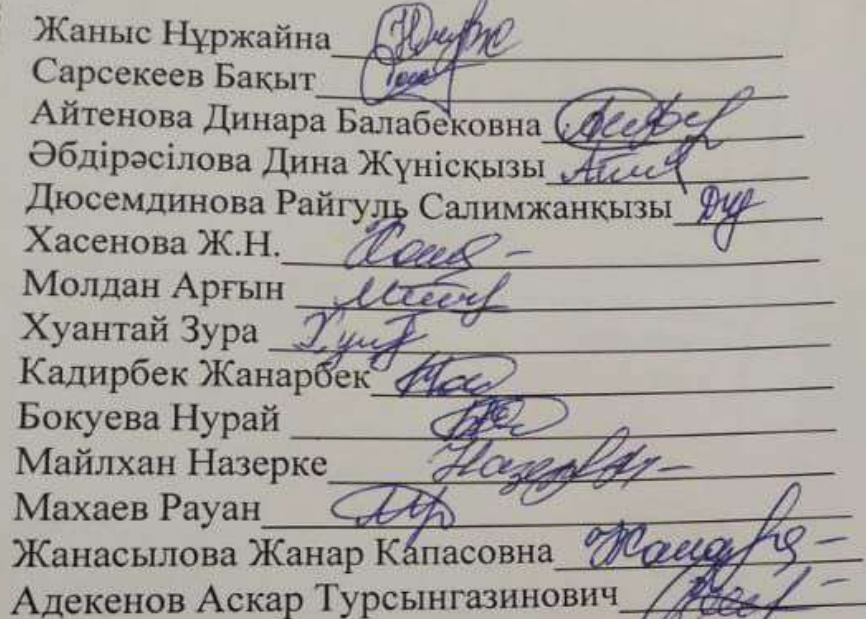 Жаныс Нұржайна
Сарсекеев Бақыт
Айтенова Динара Балабековна
Әбдірәсілова Дина Жүнісқызы
Дюсемдинова Райгуль Салимжанқызы
Хасенова Ж.Н.
Молдан Арғын
Хуантай Зура
Кадирбек Жанарбек
Бокуева Нурай
Майлхан Назерке
Махаев Рауан
Жанасылова Жанар Капасовна
Адекенов Аскар Турсынгазинович